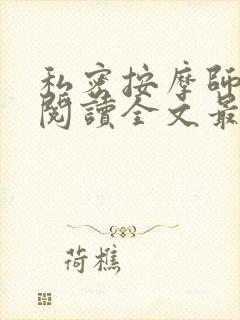 私密按摩師
閱讀全文最
荷樵